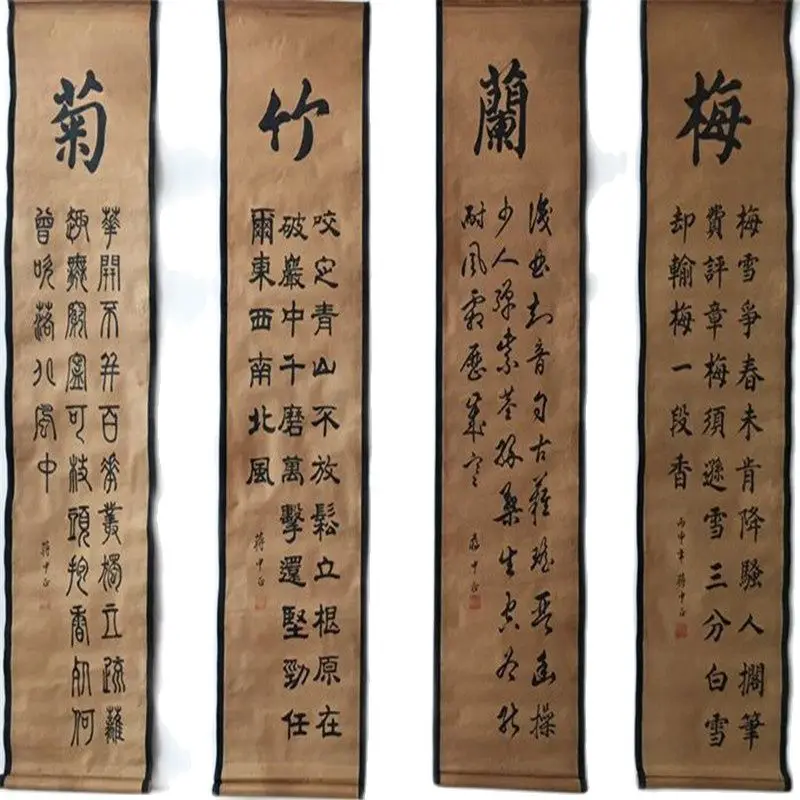 梅
梅雪爭春未肯降騷人擱筆
費評章梅須遜雪三分白雪
却輸梅一段香
丙申年 蔣中正
蘭
識曲知音自古難瑤琴幽操
少人彈紫莖綠葉生空谷能
耐風霜歷歲寒
蔣中正
竹
咬定青山不放鬆立根原在
破巖中千磨萬擊還堅勁任
爾東西南北風
蔣中正
菊
華開不并百花叢獨立疏籬
趣無窮寧可枝頭抱香死何
曾吹落北風中
蔣中正